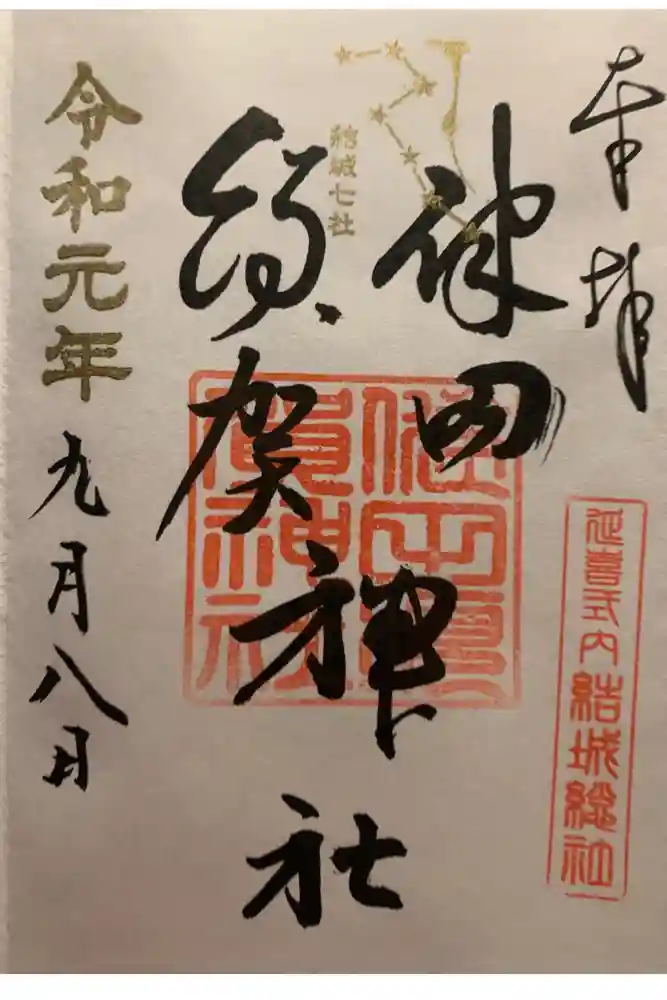 奉拝
延喜式内結城総社
結城七社
健田
須賀神社
健田須
賀神社
令和元年九月八日